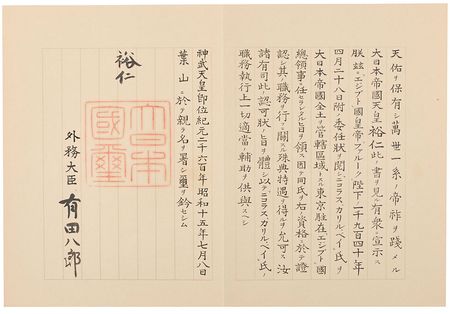 天佑ヲ保有シ萬世一系ノ帝祚ヲ踐メル
大日本帝國天皇裕仁此ノ書ヲ見ル有衆ニ宣示ス
朕茲ニエジプト國皇帝ファルーク陛下一千九百四十年
四月二十八日附ノ委任狀ヲ閲シニコラスカリルベイ氏ヲ
大日本帝國全土ヲ管轄區域トスル東京駐在エジプト國
總領事ニ任セラレタル旨ヲ領ス因テ同氏ヲ右ノ資格ニ於テ證
認シ其ノ職務ヲ行フニ關スル殊典特遇ヲ得ルヲ允可ス汝
諸有司此ノ認可狀ノ旨ヲ體シ以テニコラスカリルベイ氏ノ
職務執行上一切適當ノ輔助ヲ供與スヘシ
神武天皇卽位紀元二千六百年昭和十五年七月八日
葉山ニ於テ親ラ名ヲ署シ璽ヲ鈐セシム
裕仁
大日本
國璽
外務大臣 有田八郎